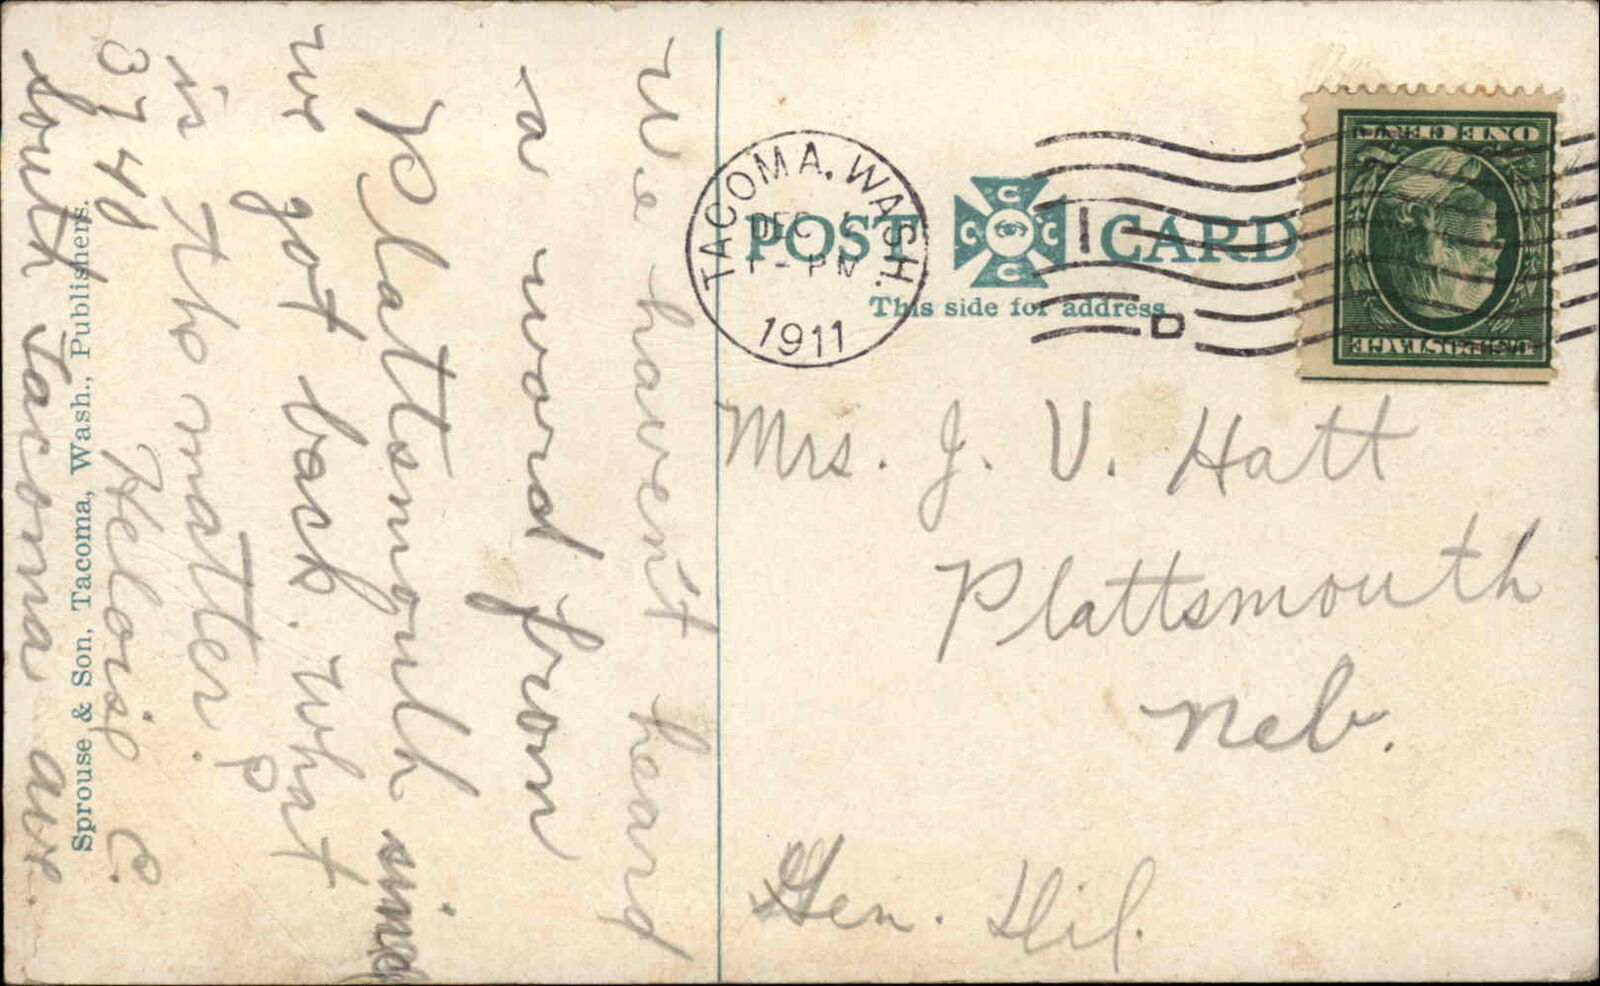 We haven't heard
a word from
Plattsmouth since
we got back. What
is the matter?
Heloise C.
3748
South Tacoma ave.
Sprouse & Son, Tacoma, Wash., Publishers.
TACOMA, WASH.
DEC
1 - PM
1911
POST CARD
C C C C
This side for address
D
ONE CENT
U.S. POSTAGE
Mrs. J. V. Hatt
Plattsmouth
Neb.
Gen. Del.